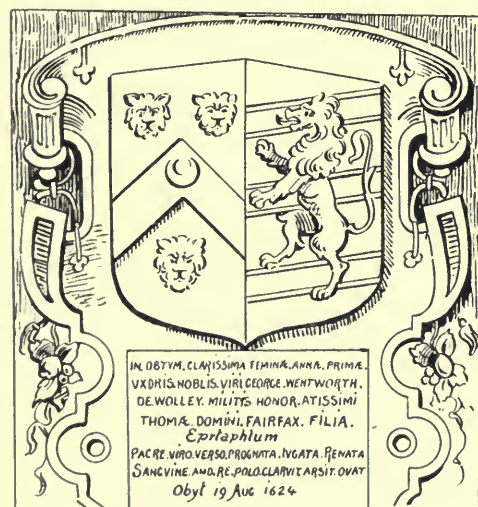 IN. OBTVM. CLARISSIMA FEMINÆ. ANNÆ. PRIMÆ.
VXORIS. NOBLIS. VIRI. GEORGE. WENTWORTH.
DE. WOLLEY. MILITIS HONOR. ATISSIMI
THOMÆ. DOMINI. FAIRFAX. FILIA.
Epitaphium
PACRE. VIRO. VERSO. PROGNATA. IVGATA. RENATA
SANGVINE. AMO. RE. POLO. CLARVIT. ARSIT. OVAT
Obyt 19 Aug 1624